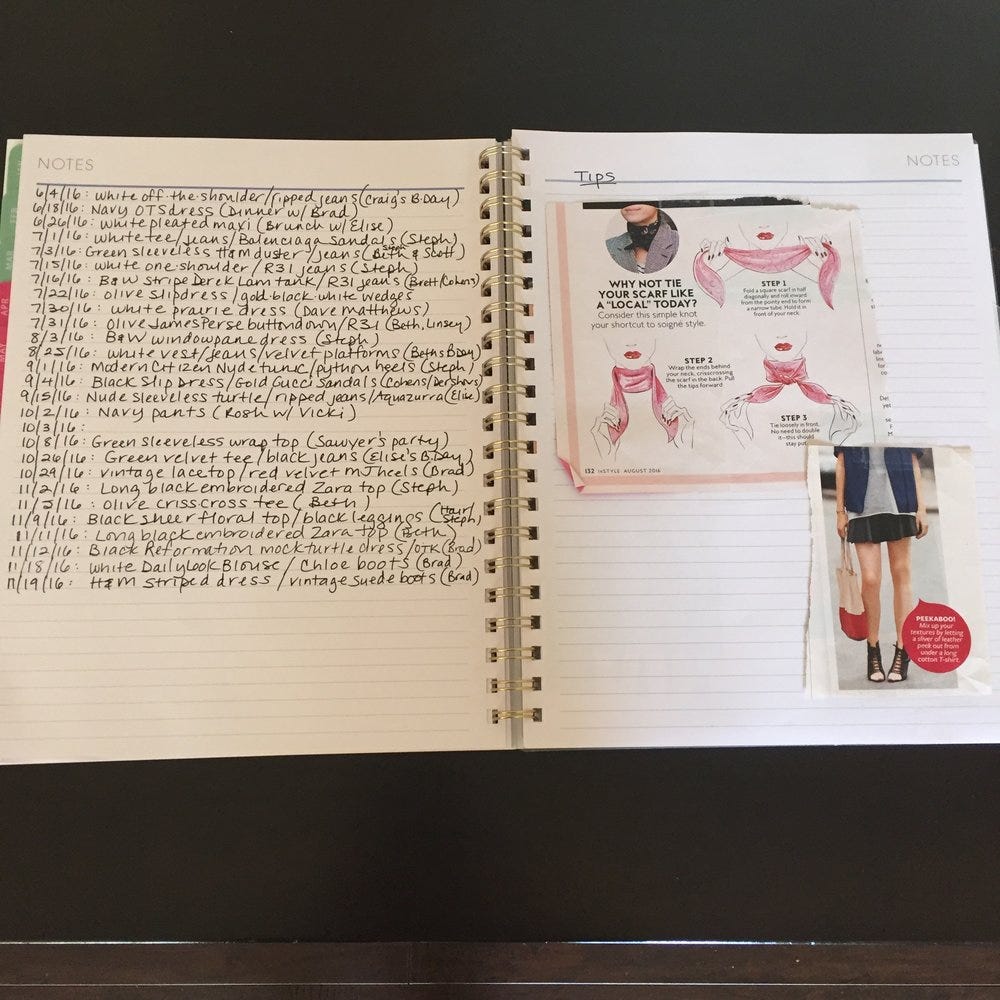 NOTES
6/4/16: white off-the-shoulder/ripped jeans (Craig's B.Day)
6/18/16: Navy OTS dress (Dinner w/ Brad)
6/26/16: white pleated maxi (Brunch w/ Elise)
7/1/16: white tee/jeans/Balenciaga Sandals (Steph)
7/3/16: Green sleeveless H&M duster/jeans (Beth & Scott)
7/15/16: white one shoulder/R31 jeans (Steph)
7/16/16: B&W stripe Derek Lam tank/R31 jeans (Brett/Cohens)
7/22/16: olive slipdress/gold-black-white wedges
7/30/16: white prairie dress (Dave matthews)
7/31/16: Olive James Perse buttondown/R31 (Beth, Linsey)
8/3/16: B&W windowpane dress (Steph)
8/25/16: white vest/jeans/velvet platforms (Beth's B.Day)
9/1/16: Modern Citizen Nude tunic/python heels (Steph)
9/4/16: Black Slip Dress/Gold Gucci Sandals (Cohens/Dershovs)
9/15/16: Nude sleeveless turtle/ripped jeans/Aquazurra (Elise)
10/2/16: Navy pants (Rosh w/ Vicki)
10/3/16:
10/8/16: Green sleeveless wrap top (Sawyer's party)
10/26/16: Green velvet tee/black jeans (Elise's B.Day)
10/29/16: vintage lace top/red velvet MJ heels (Brad)
11/2/16: Long black embroidered Zara top (Steph)
11/5/16: olive crisscross tee (Beth)
11/9/16: Black sheer floral top/black leggings (Hair/Steph)
11/11/16: Long black embroidered Zara top (Beth)
11/12/16: Black Reformation mockturtle dress/OTK (Brad)
11/18/16: white DailyLook Blouse/Chloe boots (Brad)
11/19/16: H&M striped dress/vintage suede boots (Brad)
NOTES
TIPS
WHY NOT TIE
YOUR SCARF LIKE
A "LOCAL" TODAY?
Consider this simple knot
your shortcut to soigné style.
STEP 1
Fold a square scarf in half
diagonally and roll inward
from the pointy end to form
a narrow tube. Hold it in
front of your neck.
STEP 2
Wrap the ends behind
your neck, crisscrossing
the scarf in the back. Pull
the tips forward
STEP 3
Tie loosely in front.
No need to double
it—this should
stay put.
132 INSTYLE AUGUST 2016
PEEKABOO!
Mix up your
textures by letting
a sliver of leather
peek out from
under a long
cotton T-shirt.